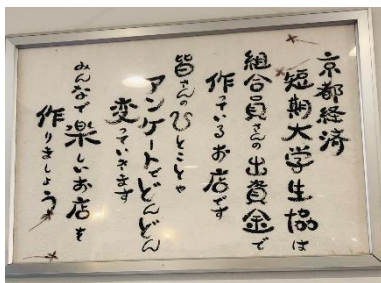 京都経済
短期大学生協は
組合員さんの出資金で
作っているお店です
皆さんのひとことや
アンケートでどんどん
変っていきます
みんなで楽しいお店を
作りましょう